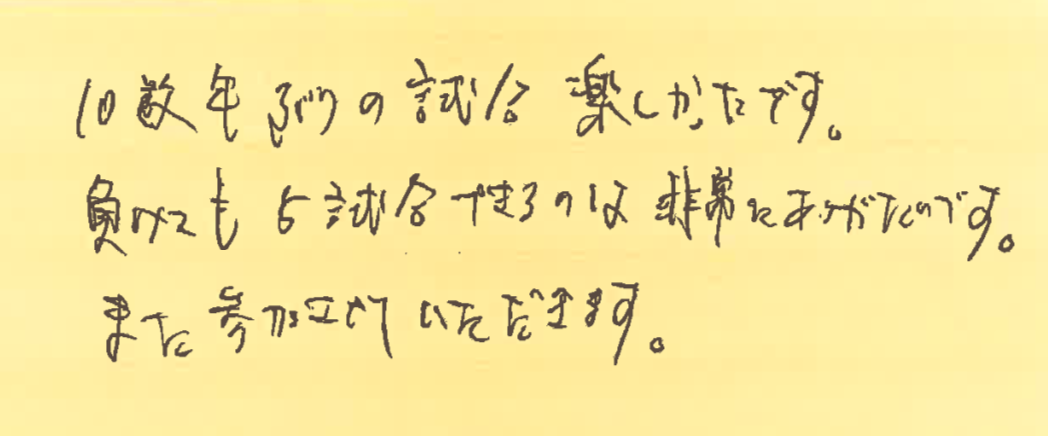 10数年ぶりの試合楽しかたです。
負けても5試合できるのは非常にありがたいです。
また参加させていただきます。